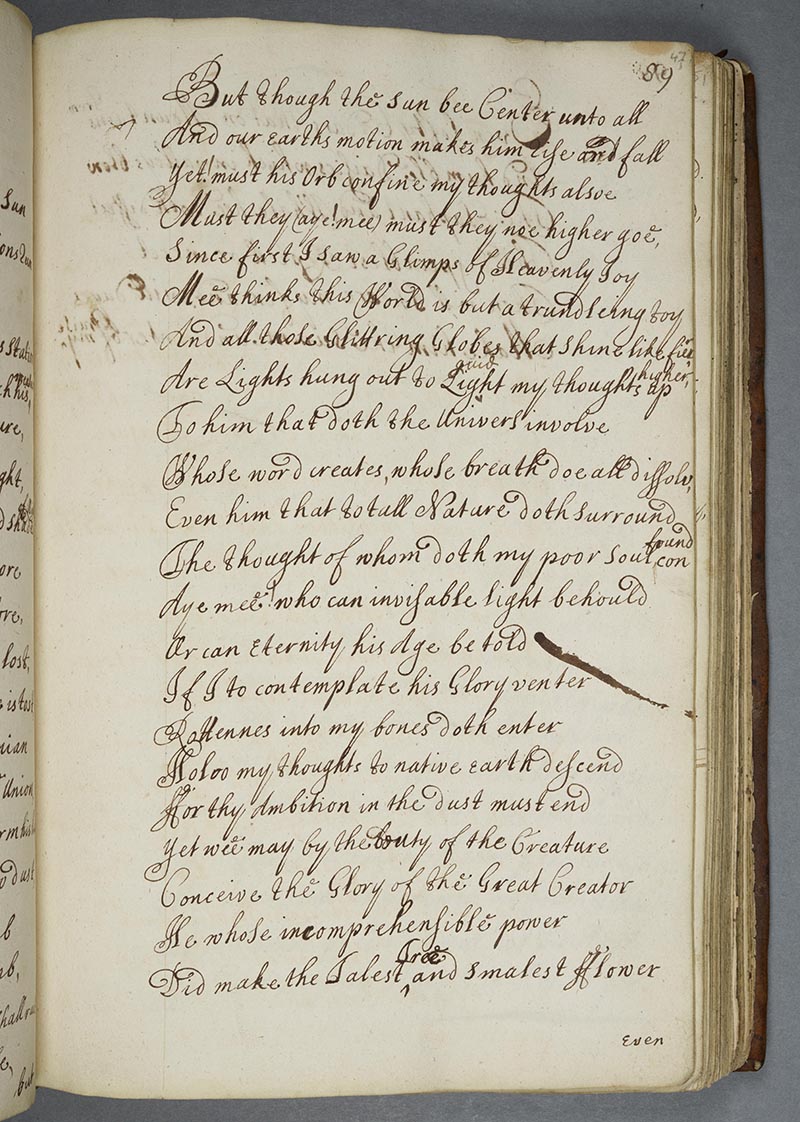 89
47
But though the Sun bee Center unto all
And our earths motion makes him rise and fall
Yet! must his Orb confine my thoughts alsoe
Must they (aye! mee) must they noe higher goe,
Since first I saw a Glimps of Heavenly Joy
Mee thinks this World is but a trundleing toy
And all those Glittring Globes that shine like fier
Are Lights hung out to Light guid my thoughts up higher,
To him that doth the Univers involve
Whose word creates, whose breath doe all dissolv,
Even him that totall Nature doth surround
The thought of whom doth my poor soul confound
Aye mee! who can invisable light behould
Or can Eternity his Age be told
If I to contemplate his Glory venter
Rottennes into my bones doth enter
Holoo my thoughts to native earth descend
For thy Ambition in the dust must end
Yet wee may by the buty of the Creature
Conceive the Glory of the Great Creator
He whose incomprehensible power
Did make the Talest Tree and smalest fflower
Even
Sun
lost,
Union
dust
but